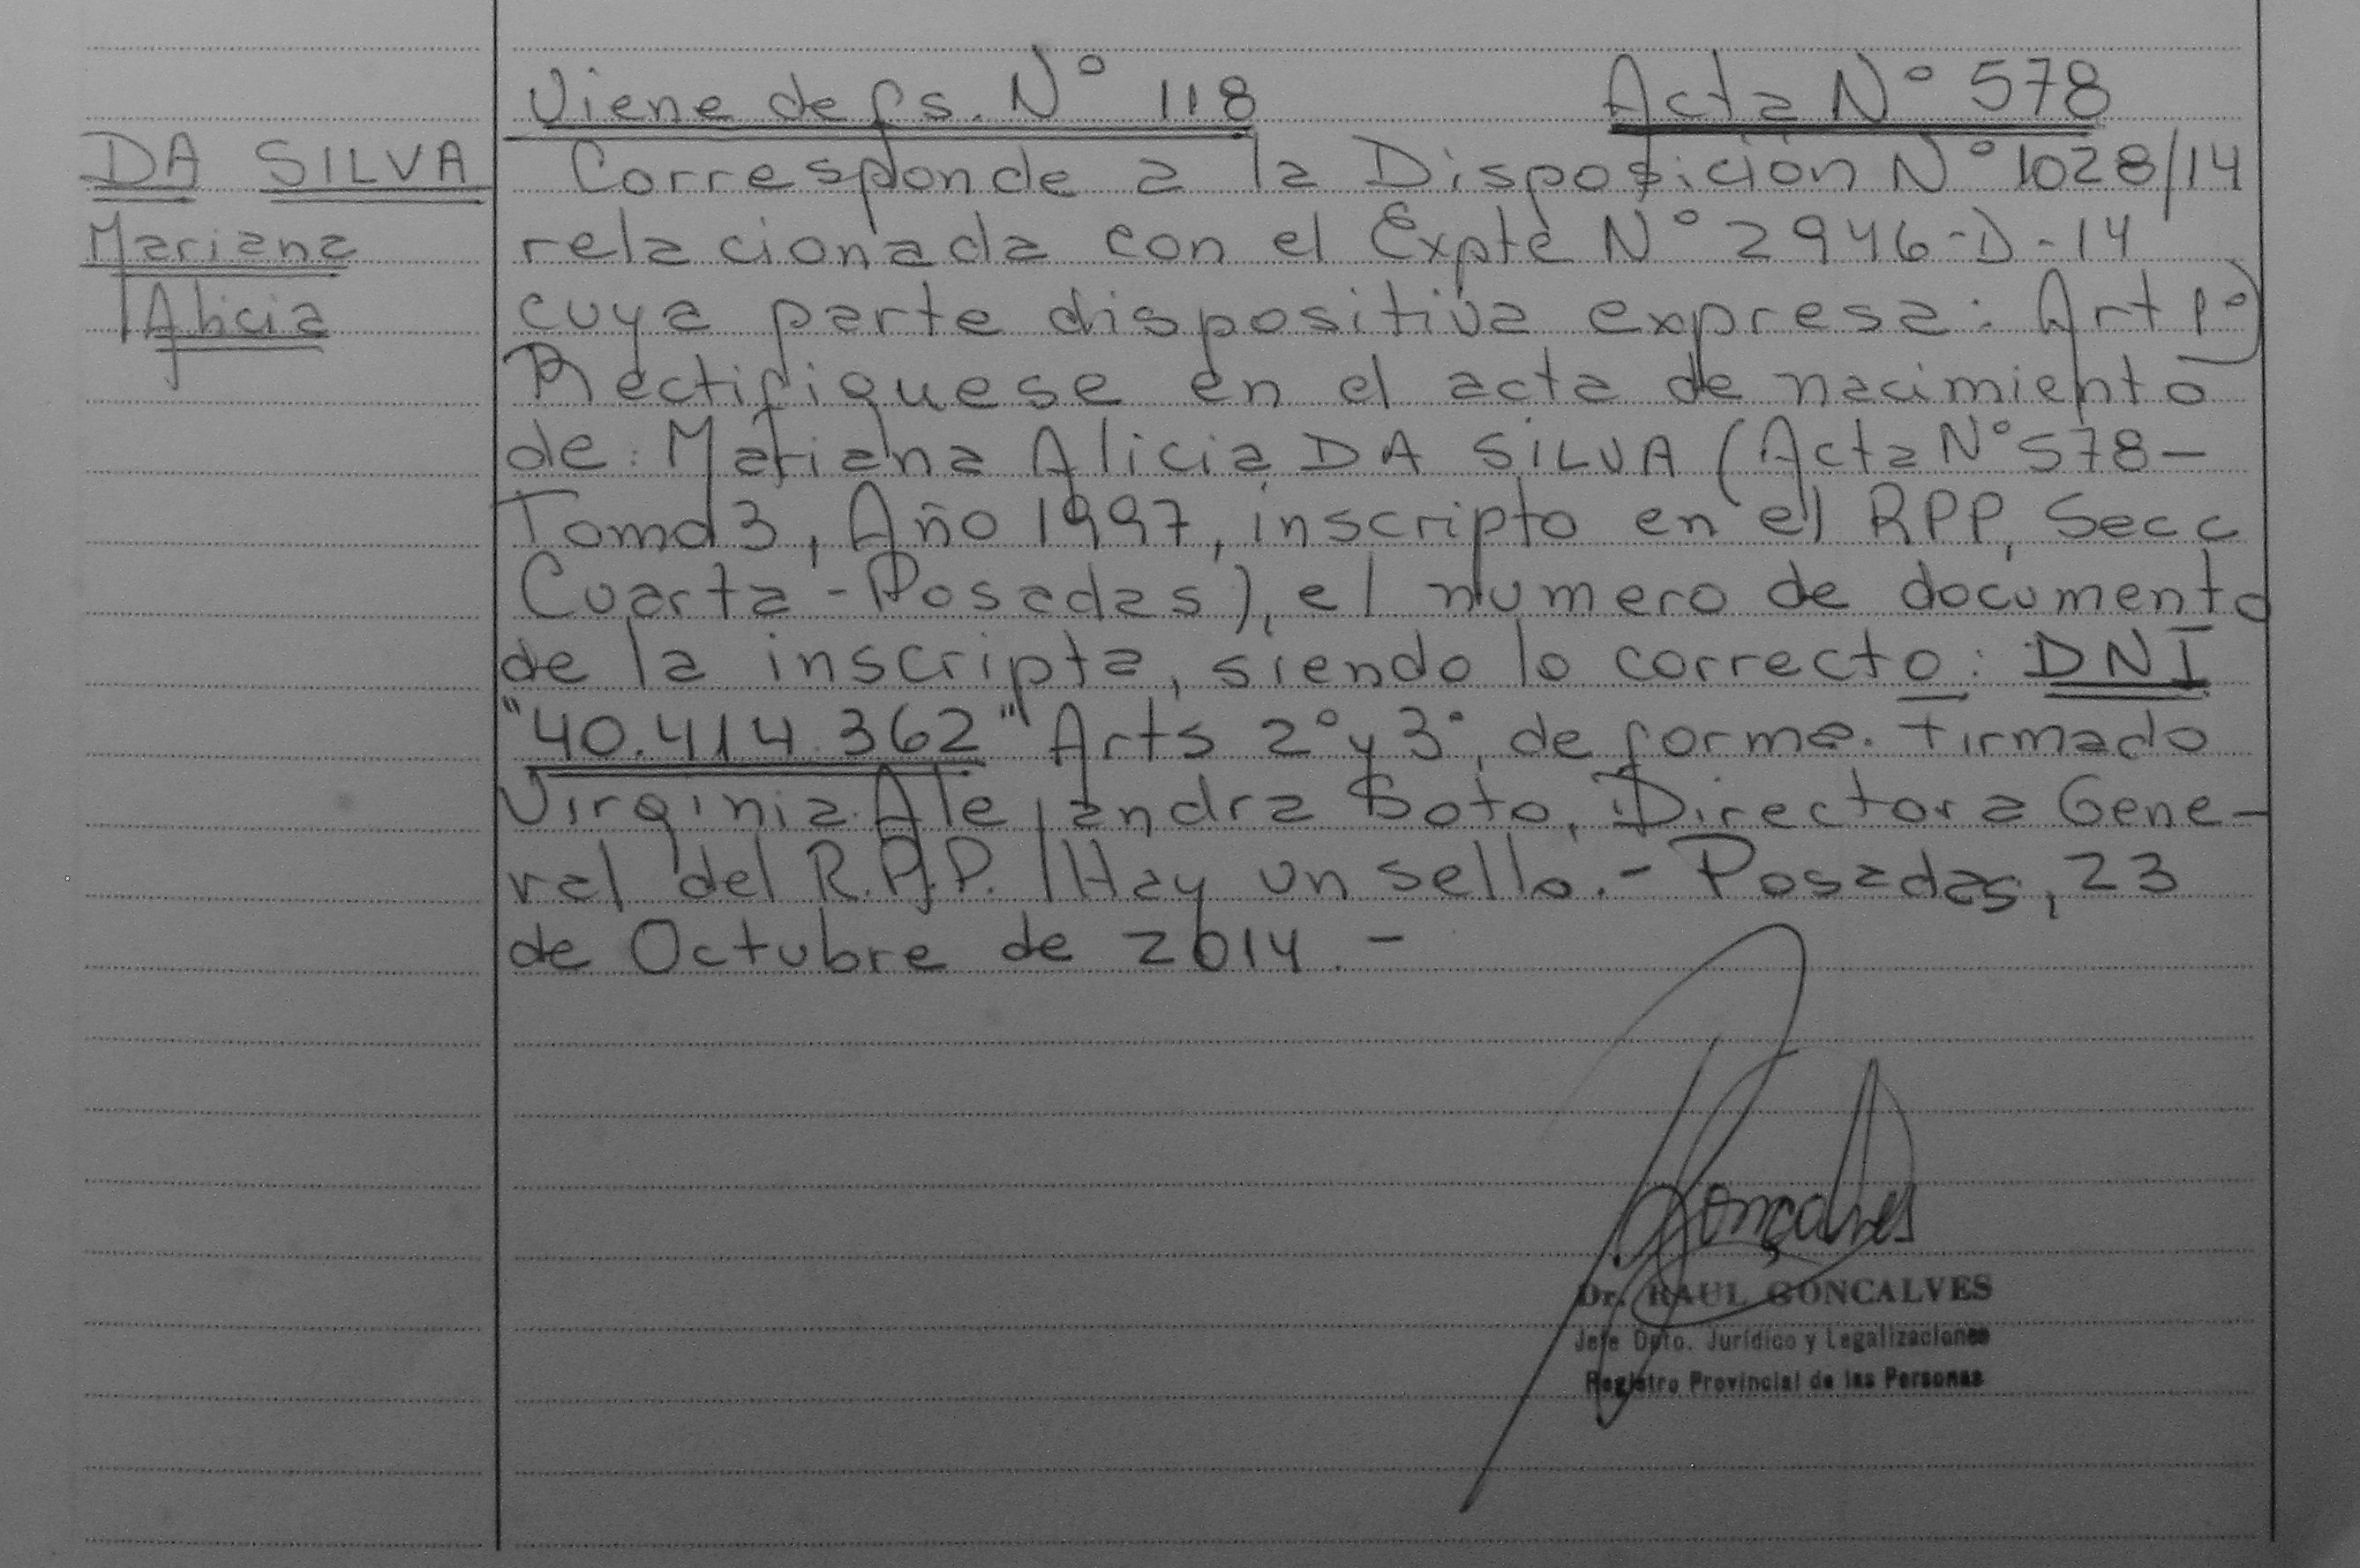 Viene de fs. N° 118 Acta N° 578
DA SILVA
Mariana
Alicia
Corresponde a la Disposición N° 1028/14
relacionada con el Expte N° 2946-D-14
cuya parte dispositiva expresa: Art 1°)
Rectifiquese en el acta de nacimiento
de: Mariana Alicia DA SILVA (Acta N° 578-
Tomo 3, Año 1997, inscripto en el RPP, Secc
Cuarta - Posadas), el numero de documento
de la inscripta, siendo lo correcto: DNI
"40.414.362" Arts 2° y 3°, de forma. Firmado
Virginia Alejandra Boto, Directora Gene-
ral del R.P.P. / Hay un sello.- Posadas, 23
de Octubre de 2014.-
Gonçalves
Dr. RAUL GONCALVES
Jefe Dpto. Jurídico y Legalizaciones
Registro Provincial de las Personas